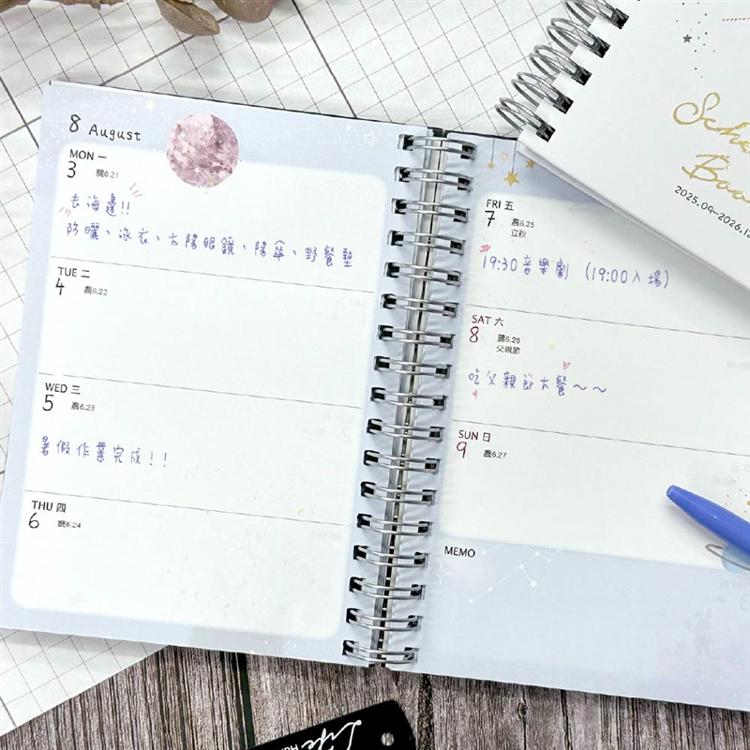 8 August
MON 一
3 農6.21
去海邊!!
防曬、泳衣、太陽眼鏡、陽傘、野餐墊
TUE 二
4 農6.22
WED 三
5 農6.23
暑假作業完成!!
THU 四
6 農6.24
FRI 五
7 農6.25
立秋
19:30音樂劇 (19:00入場)
SAT 六
8 農6.26
父親節
吃父親節大餐～～
SUN 日
9 農6.27
MEMO
2025.09-2026.12